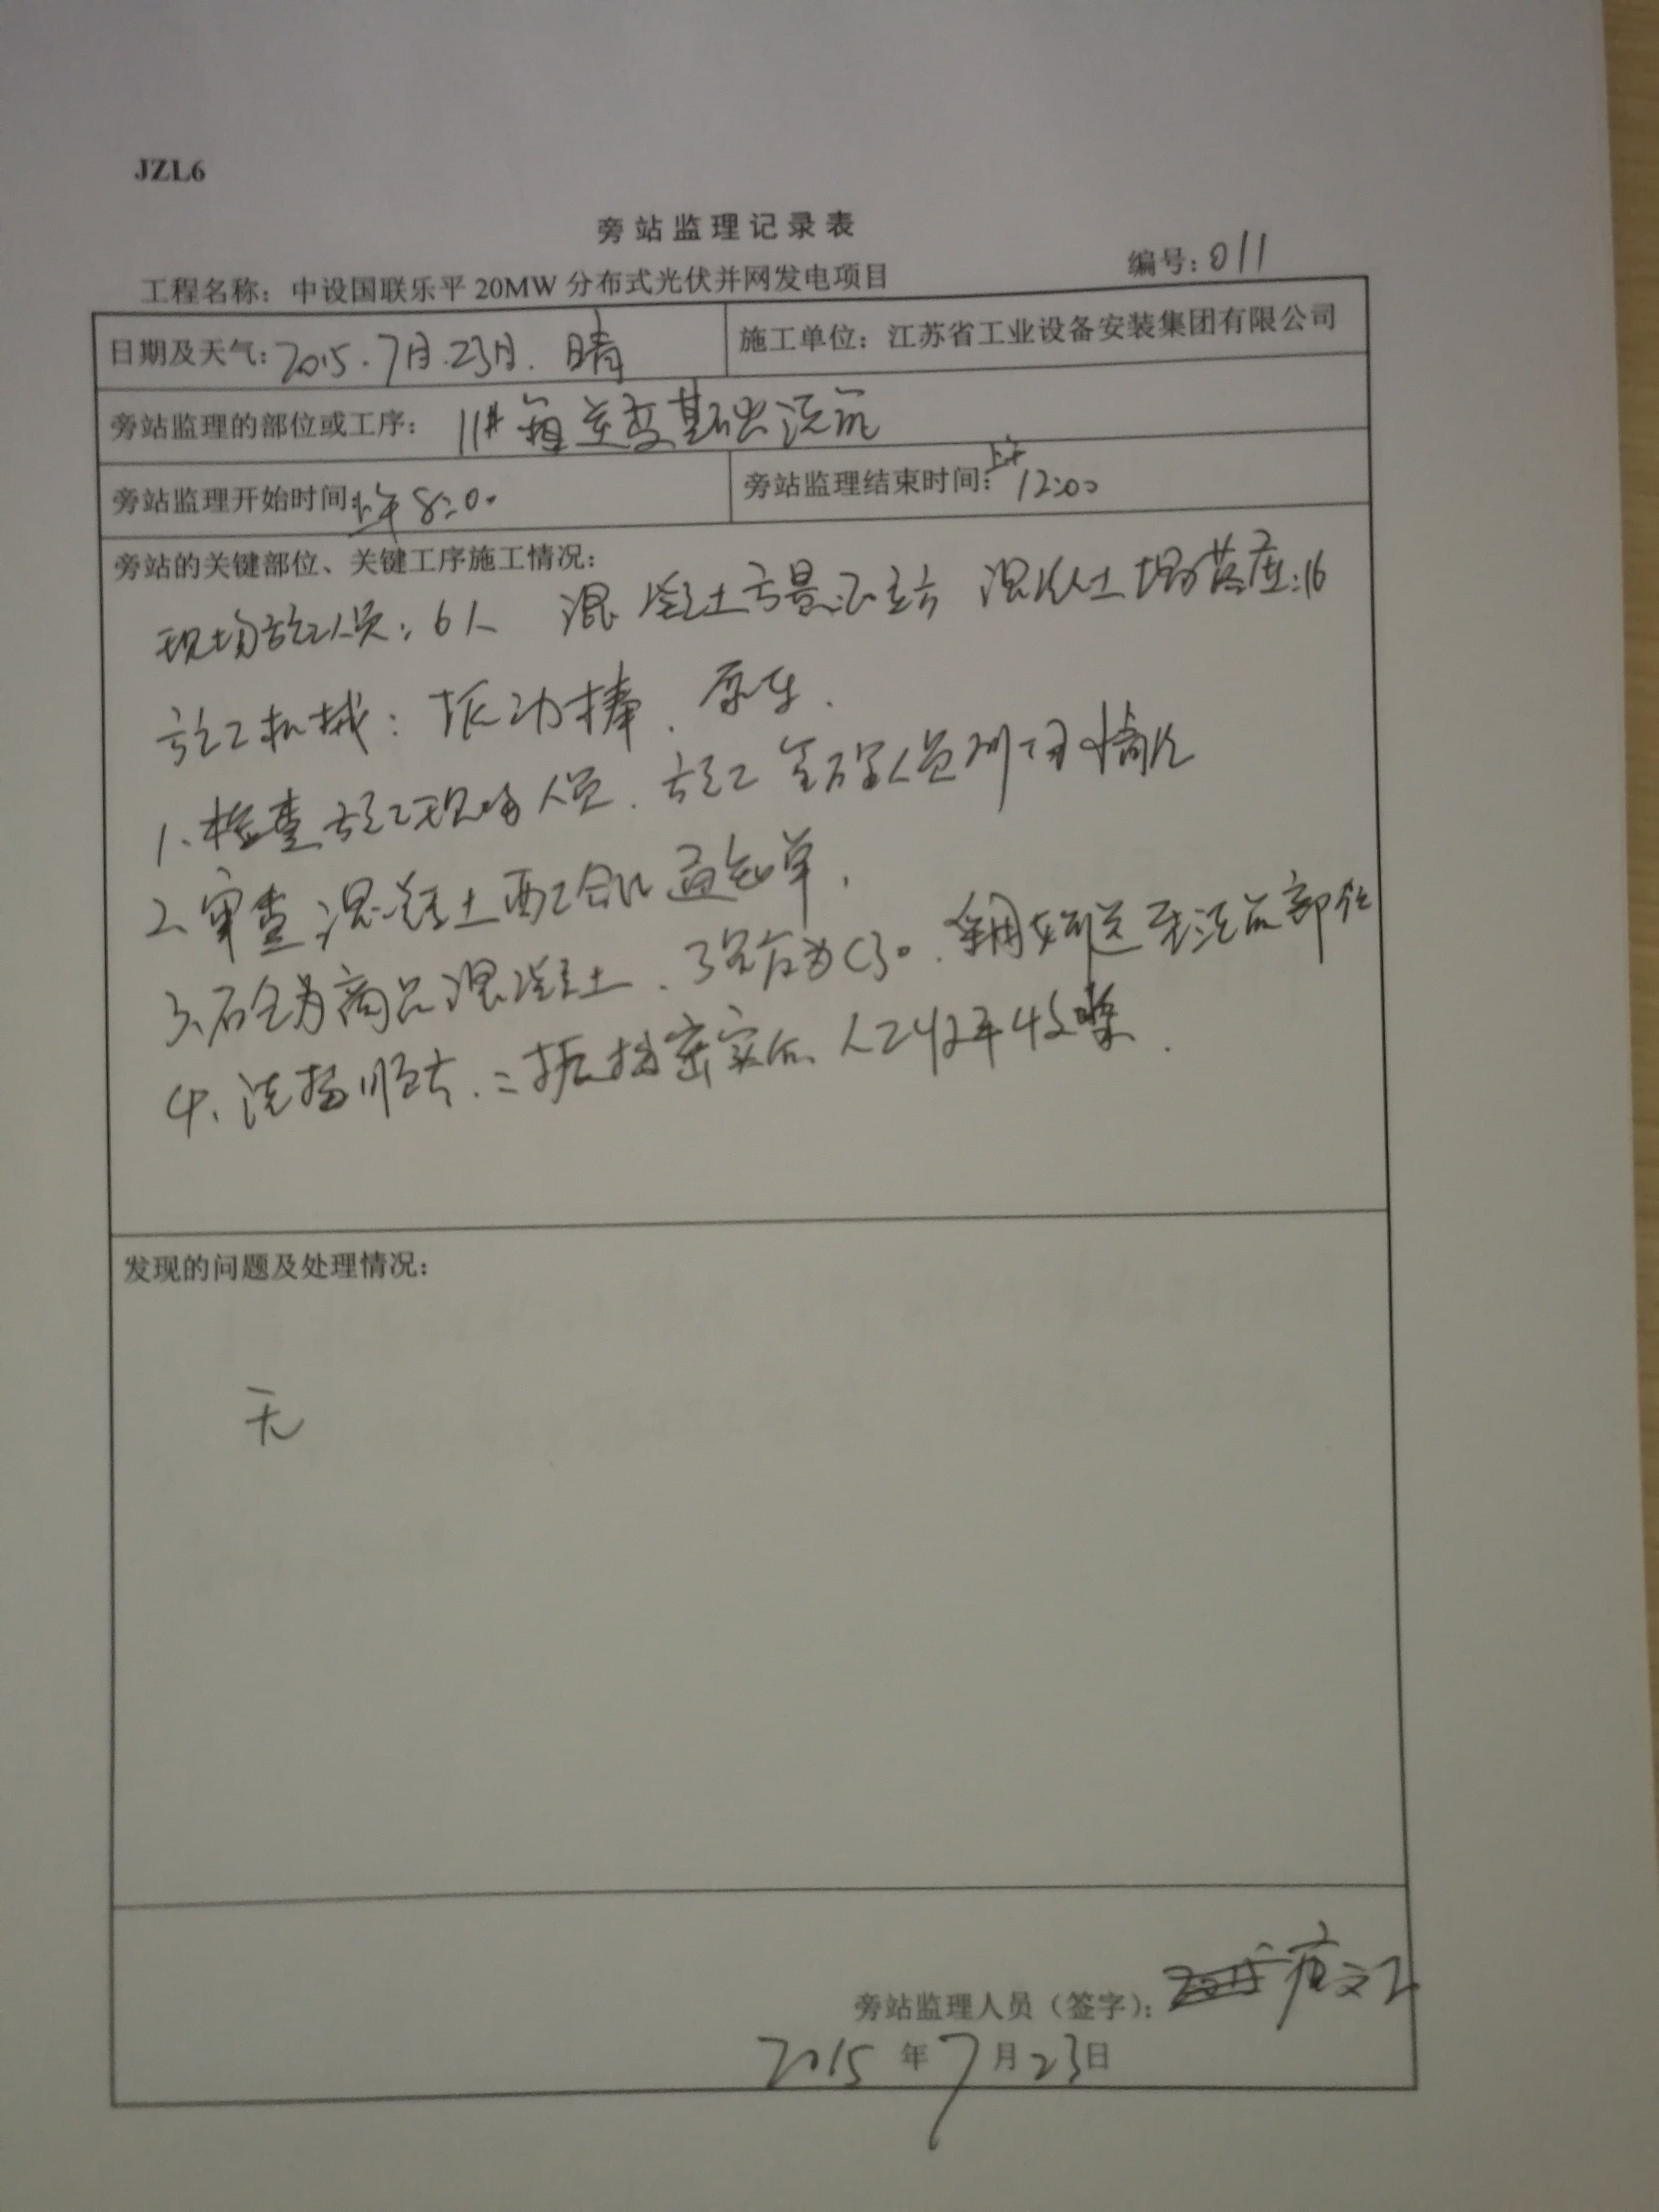 JZL6
旁站监理记录表
工程名称：中设国联乐平 20MW 分布式光伏并网发电项目 编号：011
日期及天气：2015.7月.23日. 晴 施工单位：江苏省工业设备安装集团有限公司
旁站监理的部位或工序： 11#箱逆变基础浇筑
旁站监理开始时间：上午8:00 旁站监理结束时间：上午12:00
旁站的关键部位、关键工序施工情况：
现场施工人员：6人 混凝土方量 混凝土坍落度：16
施工机械：振动棒、泵车.
1、检查施工现场人员、施工 人员到 情况
2、审查混凝土配合比通知单,
3、砼为商品混凝土、 为C30、 至浇筑部位
4、浇捣顺 振捣密实后、人工 收
发现的问题及处理情况：
无
旁站监理人员（签字）： 文
2015 年 7 月 23 日